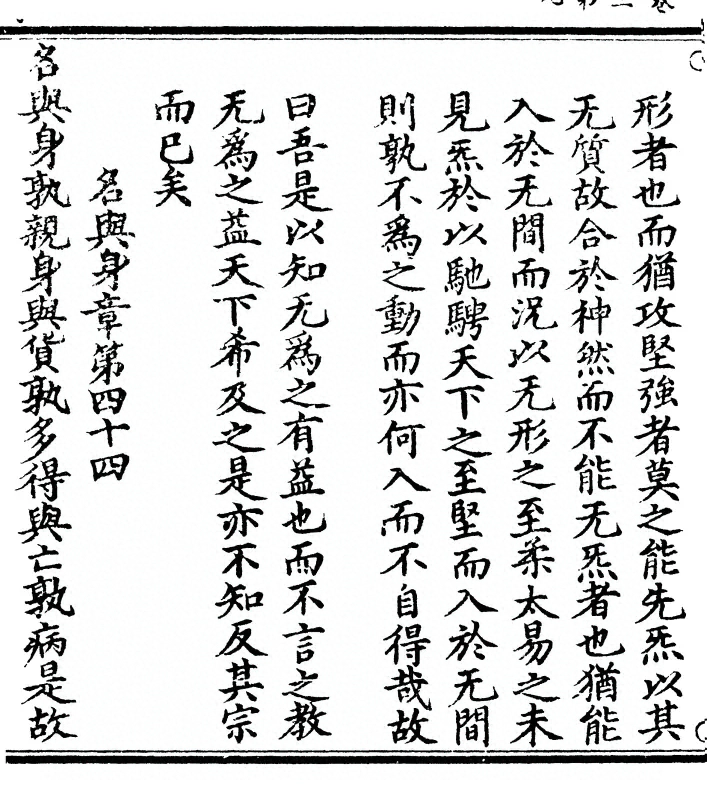 形者也而猶攻堅強者莫之能先炁以其
无質故合於神然而不能无炁者也猶能
入於无間而況以无形之至柔太易之未
見炁於以馳騁天下之至堅而入於无間
則孰不為之動而亦何入而不自得哉故
曰吾是以知无為之有益也而不言之教
无為之益天下希及之是亦不知反其宗
而已矣
名與身章第四十四
名與身孰親身與貨孰多得與亡孰病是故